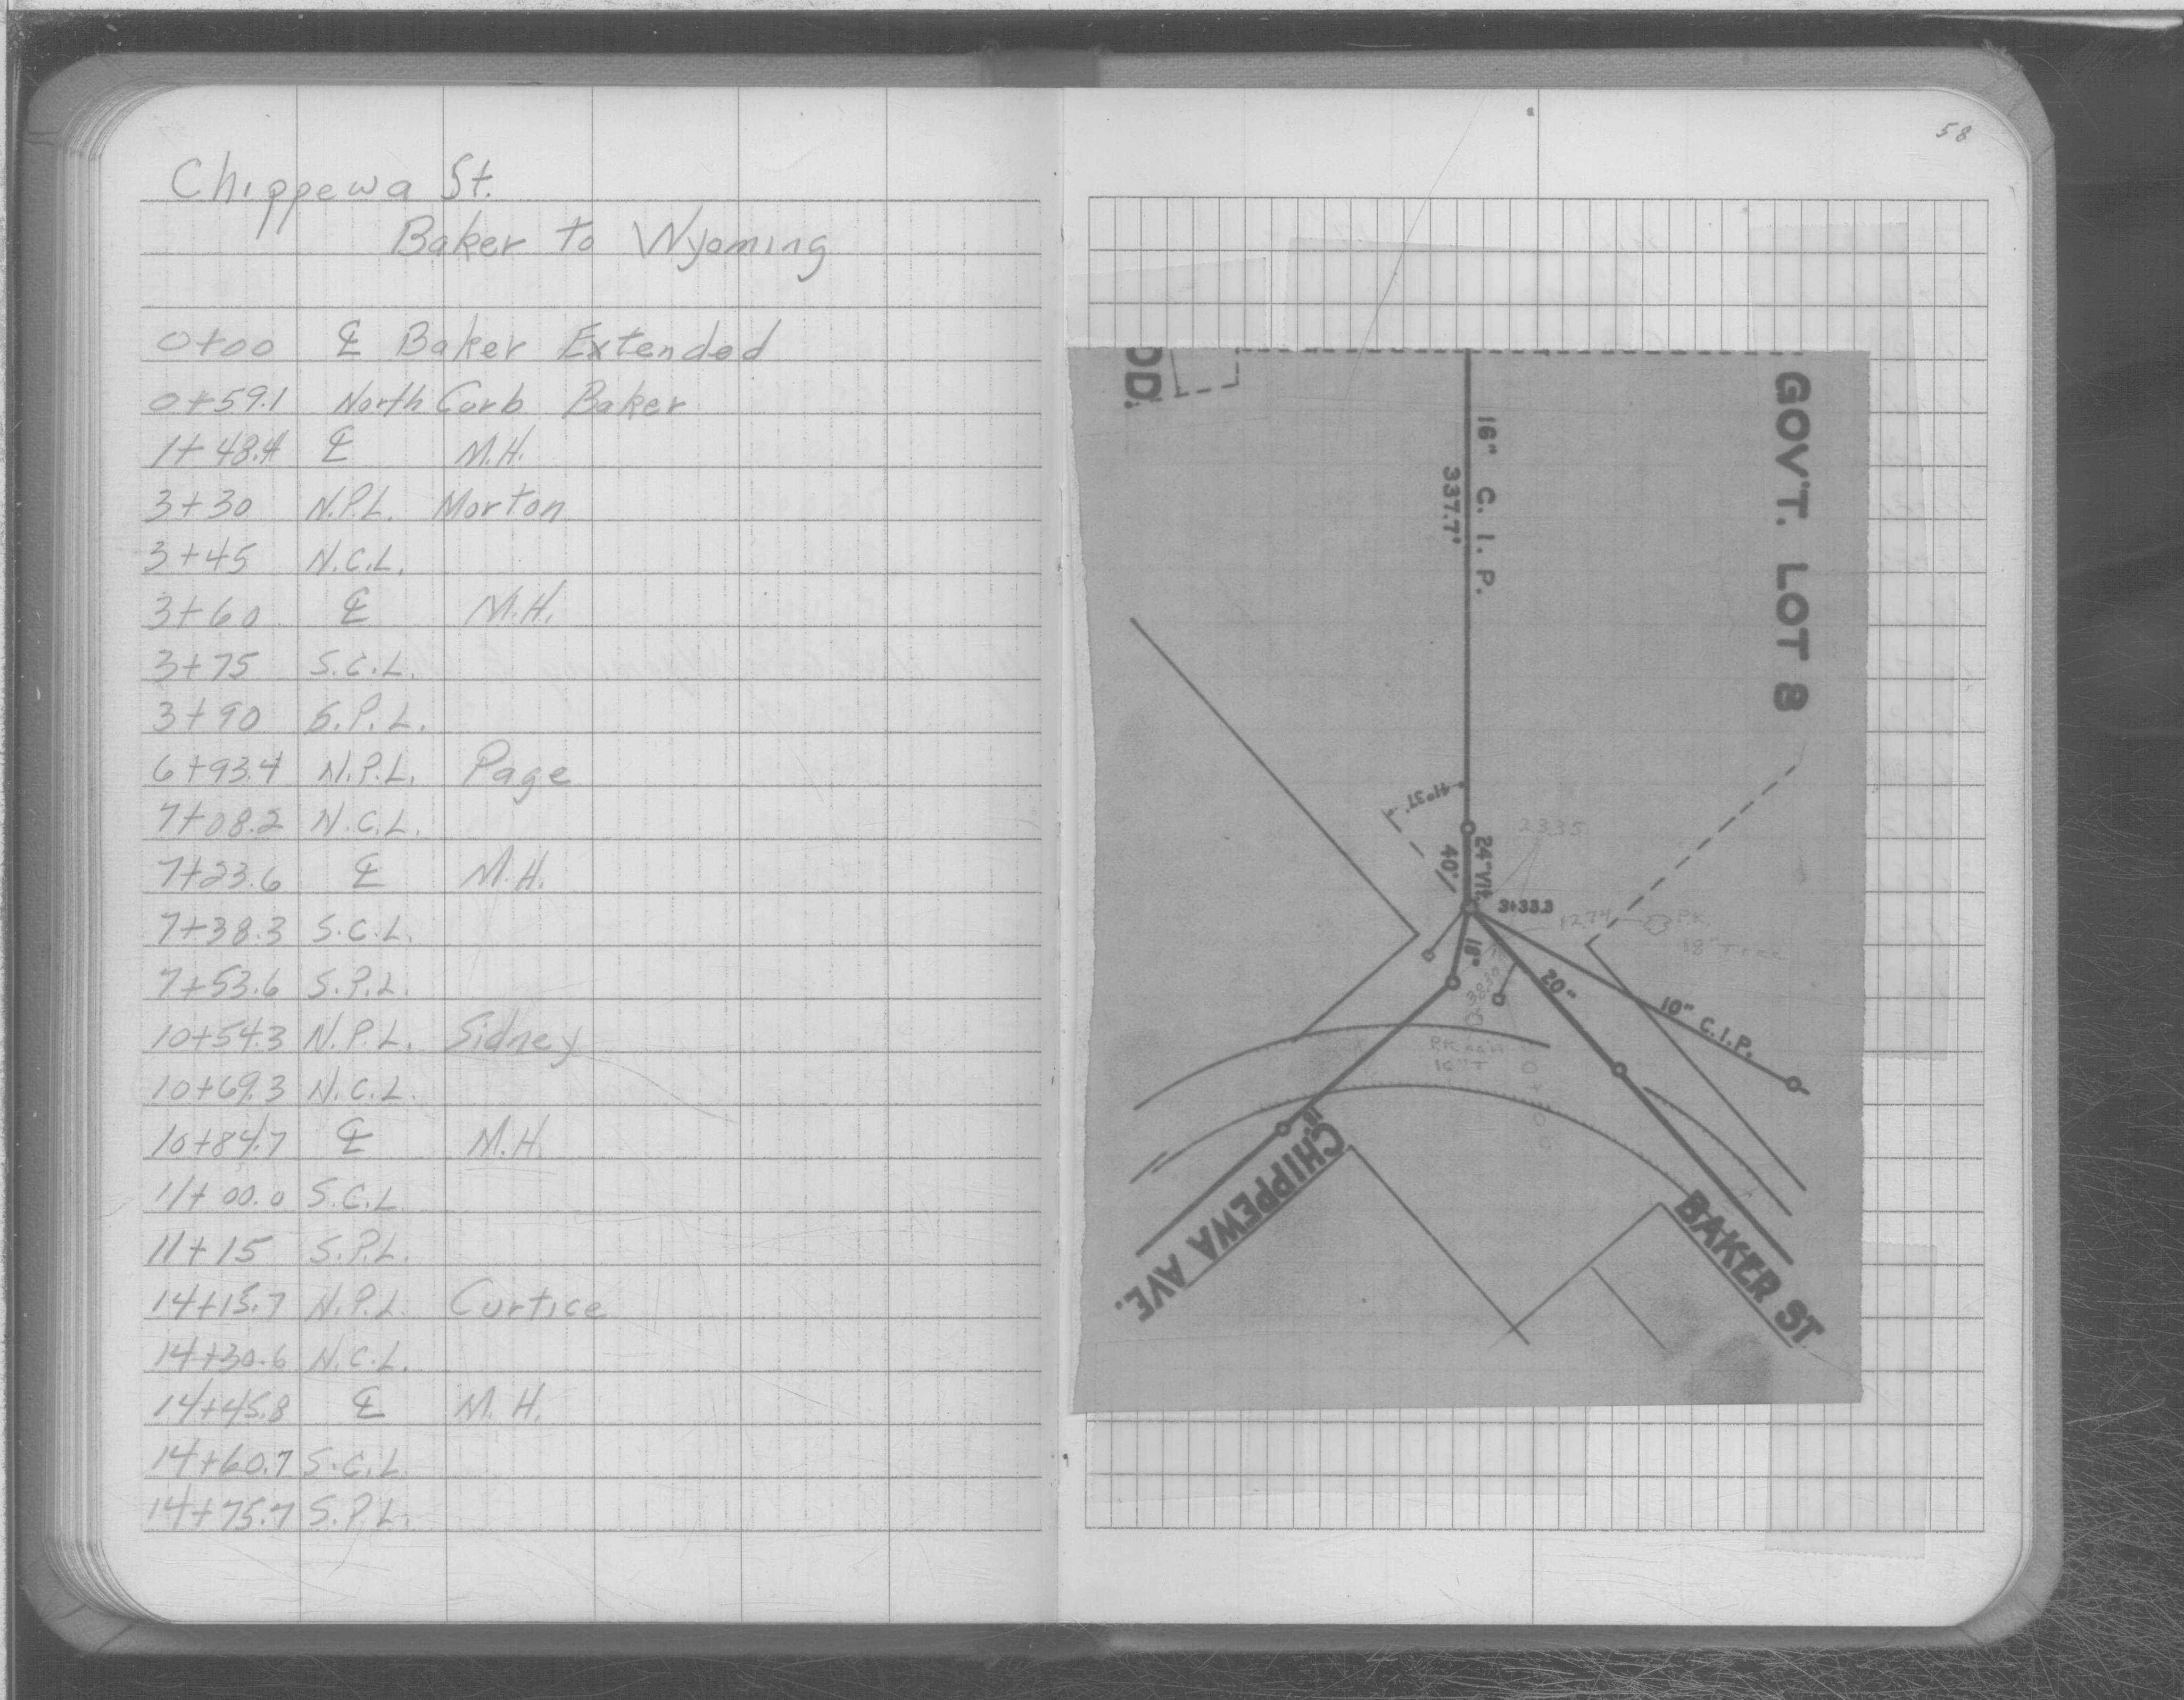 58
Chippewa St.
Baker to Wyoming
0+00 ℄ Baker Extended
0+59.1 North Curb Baker
1+48.4 ℄ M.H.
3+30 N.P.L. Morton
3+45 N.C.L.
3+60 ℄ M.H.
3+75 S.C.L.
3+90 S.P.L.
6+93.4 N.P.L. Page
7+08.2 N.C.L.
7+23.6 ℄ M.H.
7+38.3 S.C.L.
7+53.6 S.P.L.
10+54.3 N.P.L. Sidney
10+69.3 N.C.L.
10+84.7 ℄ M.H.
11+00.0 S.C.L.
11+15 S.P.L.
14+15.7 N.P.L. Curtice
14+30.6 N.C.L.
14+45.8 ℄ M.H.
14+60.7 S.C.L.
14+75.7 S.P.L.
OD.
GOV'T. LOT 8
16" C.I.P.
337.7'
41°37'
24" Vit.
40'
2335
3+33.3
1274
P.K.
18" Tree
18"
20"
10" C.I.P.
16" T
0+00
CHIPPEWA AVE.
BAKER ST.